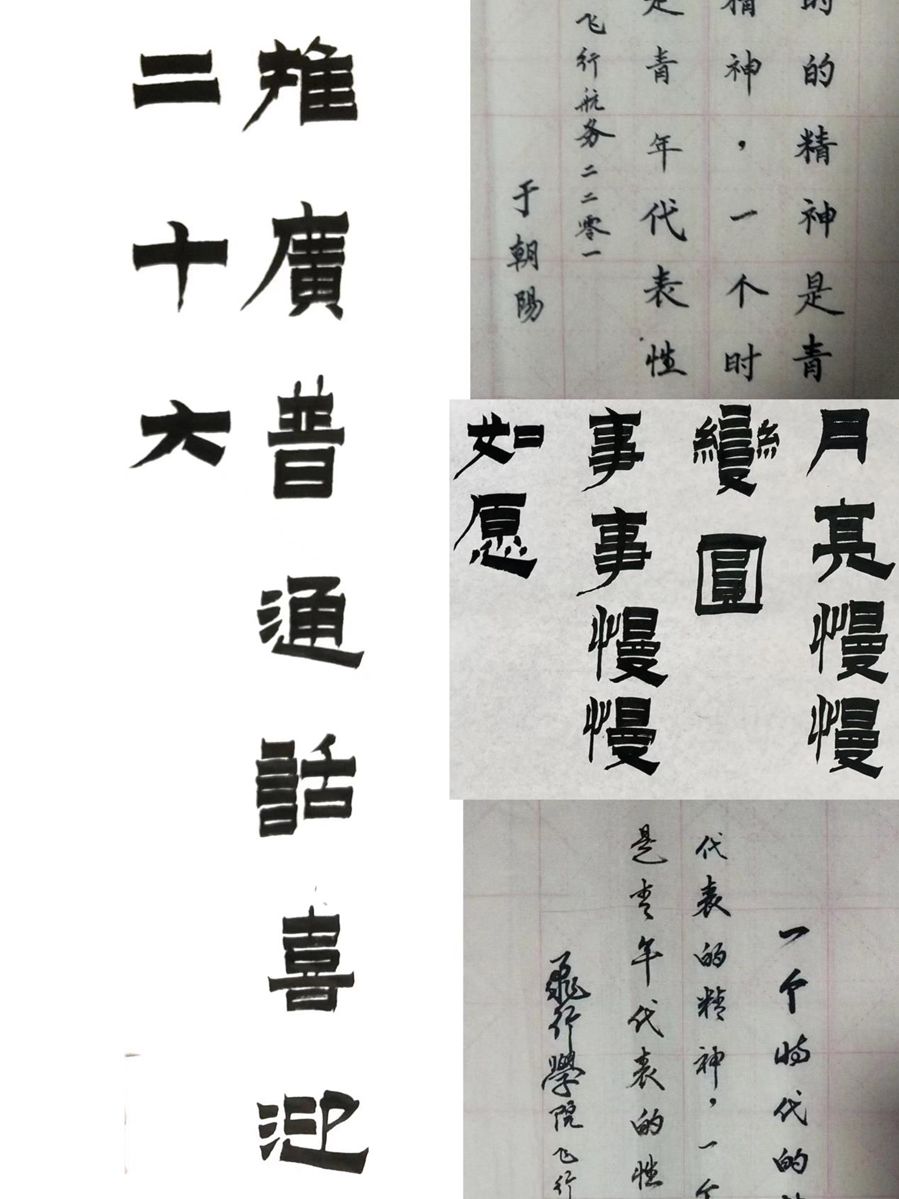 推廣普通話喜迎
二十大
的的精神是青
精神，一个时
是青年代表性
飞行航务二二零一
于朝陽
月亮慢慢
變圓
事事慢慢
如愿
一个时代的
代表的精神，一个
是青年代表的性
飛行學院飞行